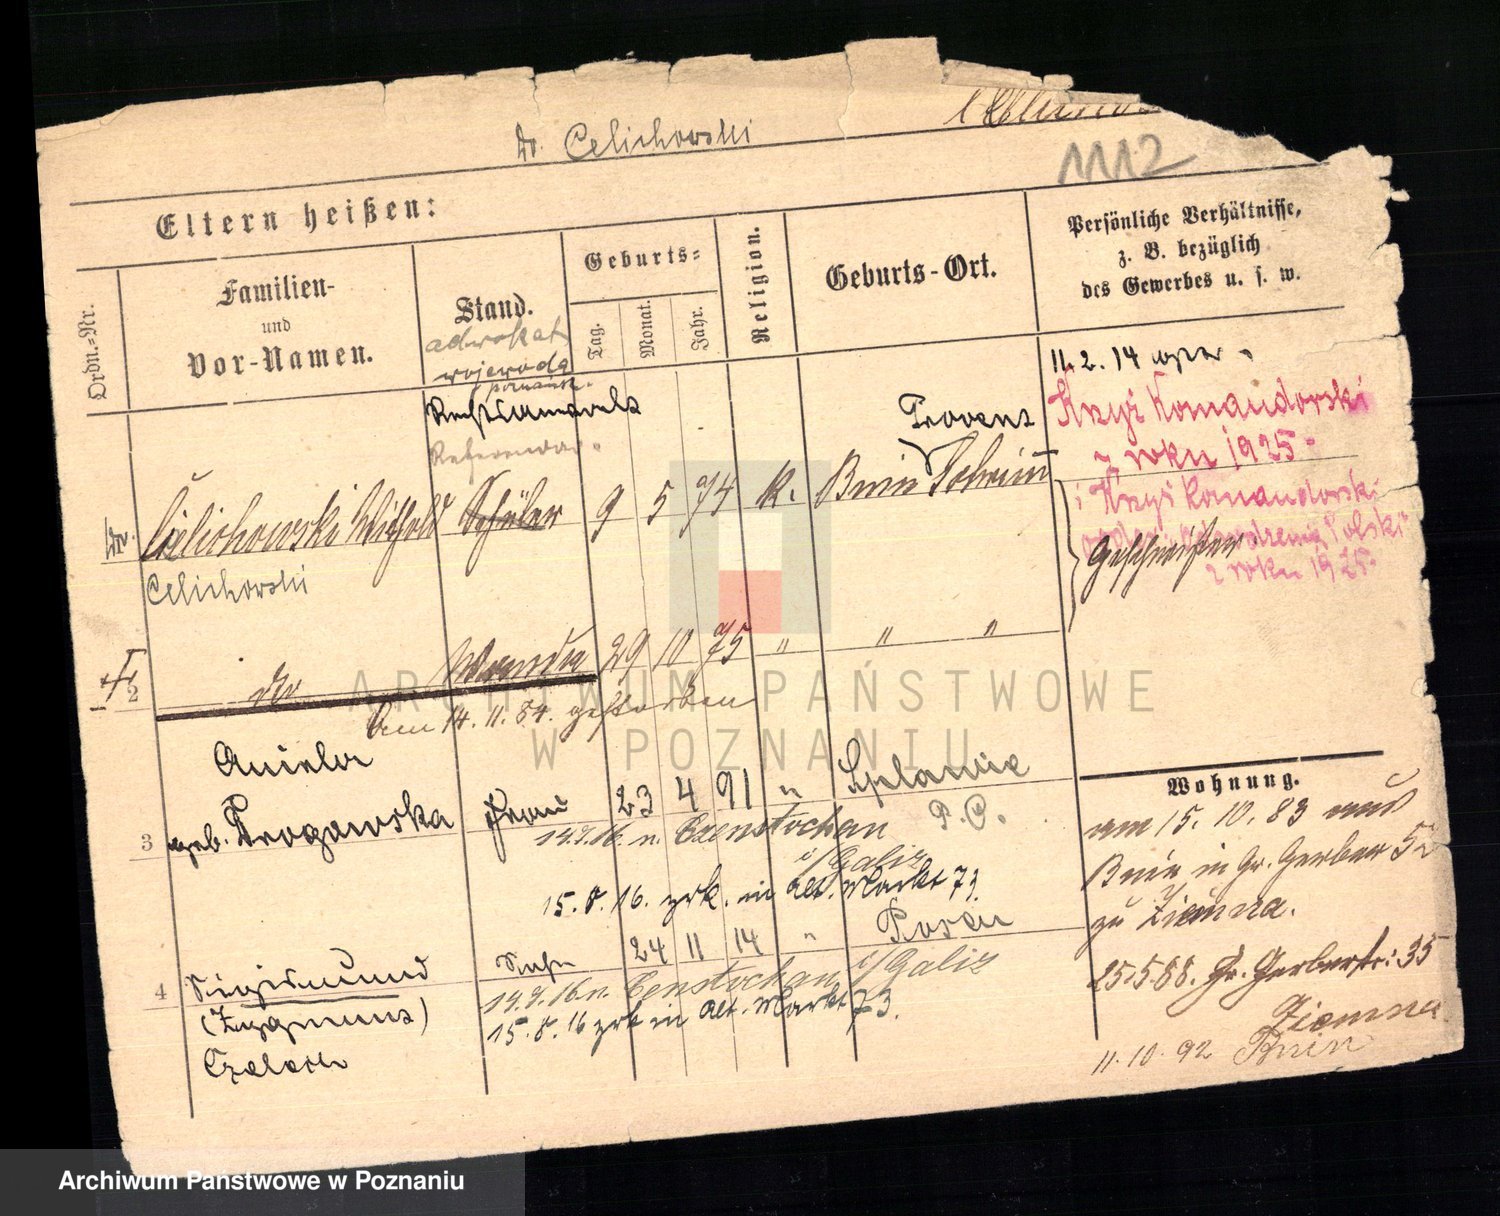 Dr. Celichowski
1112
Eltern heißen:
Ordn.-Nr.
Familien-
und
Vor-Namen.
Stand.
Geburts-
Tag.
Monat.
Jahr.
Religion.
Geburts-Ort.
Persönliche Verhältnisse,
z. B. bezüglich
des Gewerbes u. s. w.
adwokat
wojewoda
poznańsk.
Rechtsanwalt
Referendar
11. 2. 14
Krzyż Komandorski
z roku 1925
Dr. Celichowski Witold Schüler 9 5 74 K. Bnin Schrimm
Provenz
Celichowski
Krzyż Komandorski
Odrodzenia Polski
z roku 1925
Geschwister
2 die Wanda 29 10 75 " " "
Am 14. 11. 84. gestorben
Aniela
3 geb. Progawska Frau 23 4 91 " Splawie
P. O.
14.7.16. n. Czenstochau
i/Galiz
15. 8. 16. zrk. in Alt. Markt 73
4 Sigismund Sohn 24 11 14 " Posen
(Zygmunt)
Czelach
14.7.16 n. Czenstochau i/Galiz
15. 8. 16 zrk in Alt. Markt 73.
Wohnung.
am 15. 10. 83 aus
Bnin in Gr. Gerber 52
zu Ziemna.
25.5.88. Gr. Gerberstr: 35
Ziemna
11. 10. 92 Bnin
ARCHIWUM PAŃSTWOWE
W POZNANIU
Archiwum Państwowe w Poznaniu